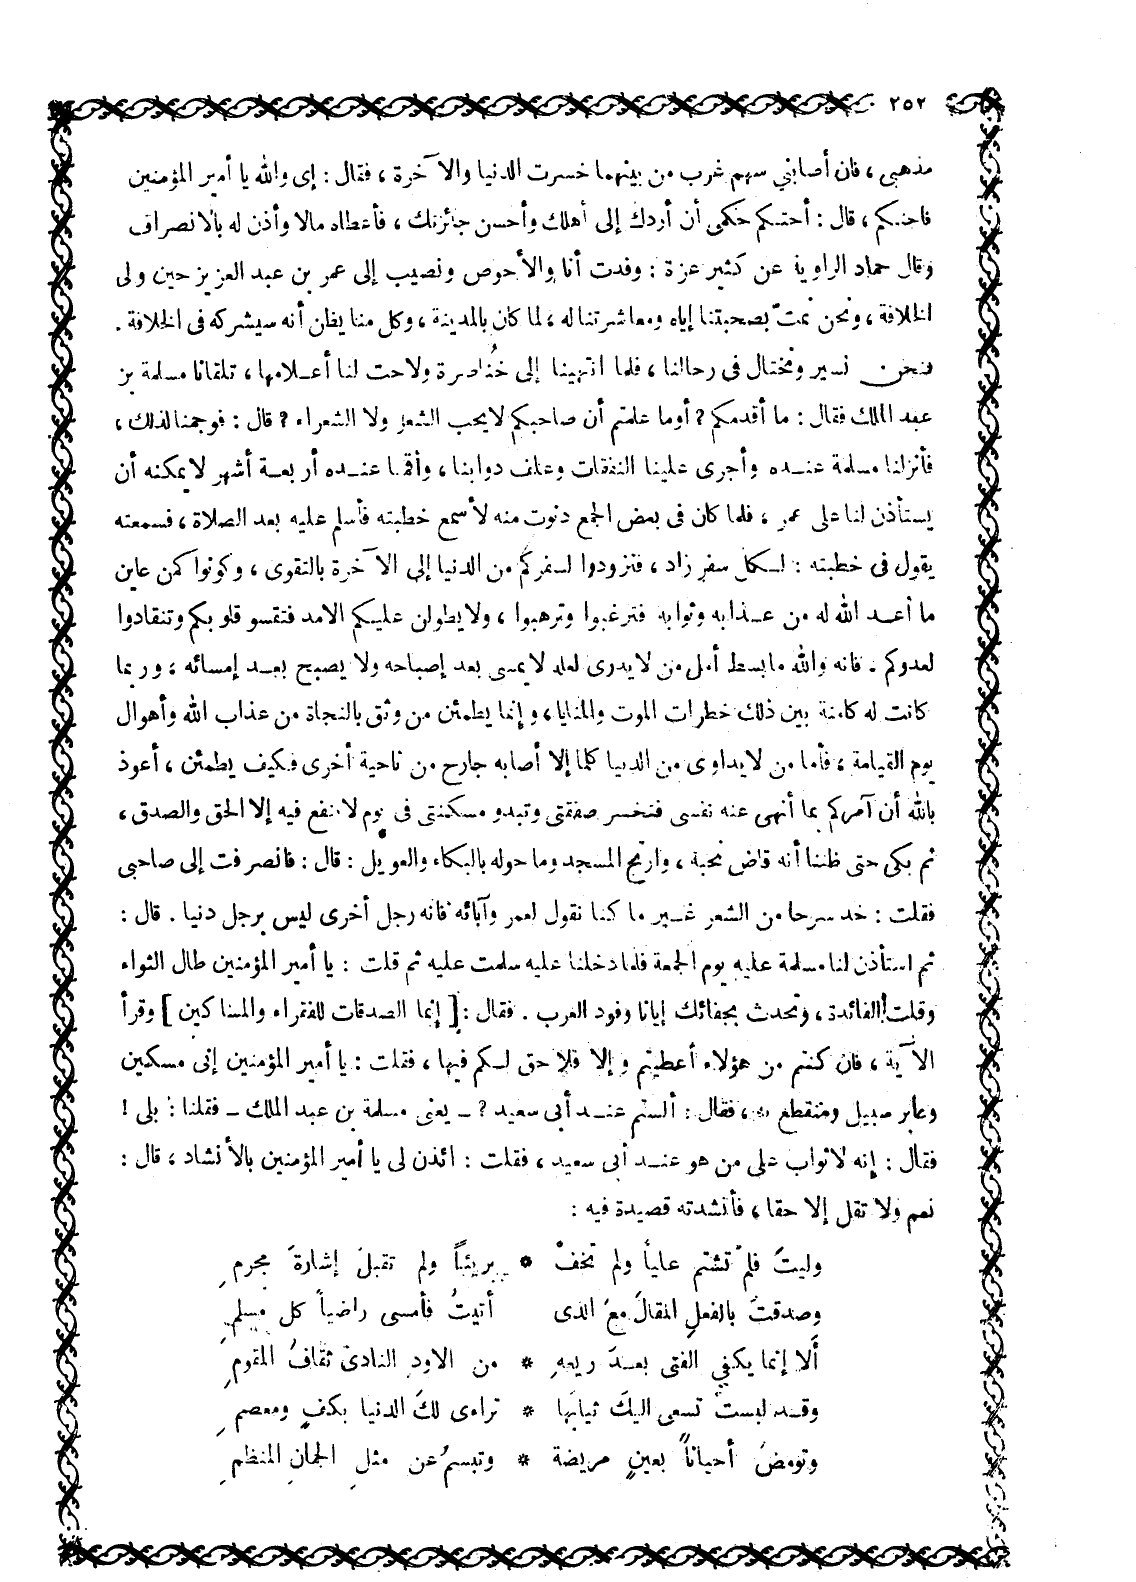 ٢٥٢
مذهبي ، فان أصابني سهم غرب من بينهما خسرت الدنيا والآخرة ، فقال : إى والله يا أمير المؤمنين
فاحتكم ، قال : أحتكم حكمى أن أردك إلى أهلك وأحسن جائزتك ، فأعطاه مالا وأذن له بالانصراف
وقال حماد الراوية عن كثير عزة : وفدت أنا والأحوص ونصيب إلى عمر بن عبد العزيز حين ولى
الخلافة ، ونحن نمتّ بصحبتنا إياه ومعاشرتنا له ، لما كان بالمدينة ، وكل منا يظن أنه سيشركه فى الخلافة .
فنحن نسير ونختال فى رحالنا ، فلما انتهينا إلى خُناصرة ولاحت لنا أعلامها ، تلقانا مسلمة بن
عبد الملك فقال : ما أقدمكم ? أوما علمتم أن صاحبكم لا يحب الشعر ولا الشعراء ? قال : فوجمنا لذلك ،
فأنزلنا مسلمة عنده وأجرى علينا النفقات وعلف دوابنا ، وأقمنا عنده أربعة أشهر لا يمكنه أن
يستأذن لنا على عمر ، فلما كان فى بعض الجمع دنوت منه لأسمع خطبته فأسلم عليه بعد الصلاة ، فسمعته
يقول فى خطبته : لكل سفر زاد ، فتزودوا لسفركم من الدنيا إلى الآخرة بالتقوى ، وكونوا كمن عاين
ما أعد الله له من عذابه وثوابه فترغبوا وترهبوا ، ولا يطولن عليكم الامد فتقسو قلوبكم وتنقادوا
لعدوكم . فانه والله ما بسط أمل من لا يدرى لعله لا يمسى بعد إصباحه ولا يصبح بعد إمسائه ، وربما
كانت له كامنة بين ذلك خطرات الموت والمنايا ، وإنما يطمئن من وثق بالنجاة من عذاب الله وأهوال
يوم القيامة ، فأما من لا يداوى من الدنيا كلما إلا أصابه جارح من ناحية أخرى فكيف يطمئن ، أعوذ
بالله أن آمركم بما أنهى عنه نفسى فتخسر صفقتى وتبدو مسكنتى فى يوم لا ينفع فيه إلا الحق والصدق ،
ثم بكى حتى ظننا أنه قاض نحبة ، وارتج المسجد وما حوله بالبكاء والعويل : قال : فانصرفت إلى صاحبى
فقلت : خذ سرحا من الشعر غير ما كنا نقول لعمر وآبائه فانه رجل أخرى ليس برجل دنيا . قال :
ثم استأذن لنا مسلمة عليه يوم الجمعة فلما دخلنا عليه سلمت عليه ثم قلت : يا أمير المؤمنين طال الثواء
وقلت الفائدة ، وتحدث بجفائك إيانا وفود العرب . فقال : [ إنما الصدقات للفقراء والمساكين ] وقرأ
الآية ، فان كنتم من هؤلاء أعطيتم وإلا فلا حق لكم فيها ، فقلت : يا أمير المؤمنين إنى مسكين
وعابر سبيل ومنقطع به ، فقال : ألستم عند أبى سعيد ? ــ يعنى مسلمة بن عبد الملك ــ فقلنا : بلى !
فقال : إنه لا ثواب على من هو عند أبى سعيد ، فقلت : ائذن لى يا أمير المؤمنين بالأنشاد ، قال :
نعم ولا تقل إلا حقا ، فأنشدته قصيدة فيه :
وليتَ فلمْ تشتم علياً ولم تخفْ * بريئاً ولم تقبلْ إشارةَ مجرمِ
وصدقتَ بالفعلِ المقالَ معَ الذى أتيتُ فأمسى راضياً كل مسلمِ
ألا إنما يكفي الفتى بعدَ ريعهِ * من الاودِ النادىْ ثقافُ المقومِ
وقد لبستْ تسعى اليكَ ثيابَها * تراءى لكَ الدنيا بكفٍ ومعصمِ
وتومضُ أحياناً بعينٍ مريضة * وتبسمُ عن مثلِ الجمانِ المنظمِ